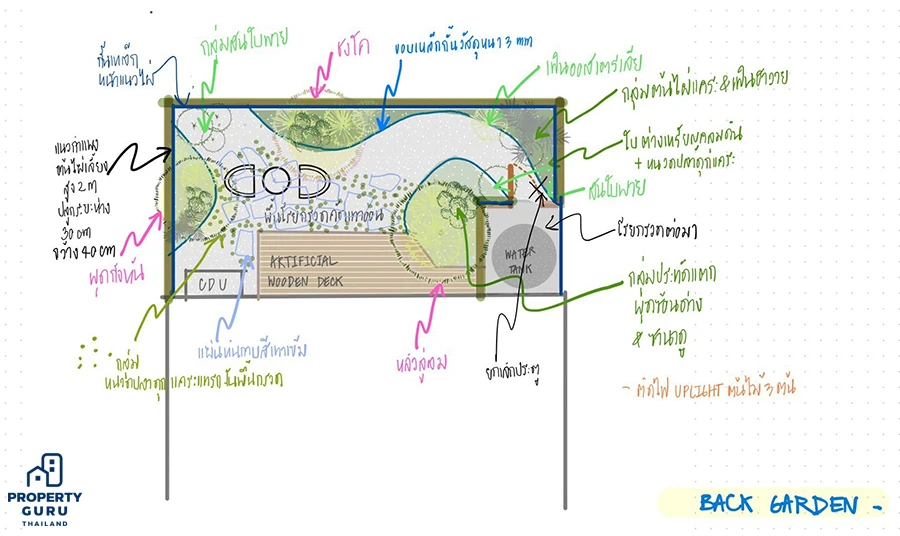 กลุ่มสนใบพาย
ชงโค
ขอบเหล็กกั้นวัสดุหนา 3 mm
กั้นเหล็ก
หน้าแนวไผ่
เฟินออสเตรเลีย
กลุ่มต้นไผ่แคระ & เฟินฮาวาย
แนวกำแพง
ต้นไผ่เลี้ยง
สูง 2 m
ปลูกระยะห่าง
30 cm
กว้าง 40 cm
ใบต่างเหรียญคลุมดิน
+ หนวดปลาดุกแคระ
สนใบพาย
พื้นโรยกรวดสีเทาอ่อน
โรยกรวดต่อมา
พุดกังหัน
ARTIFICIAL
WOODEN DECK
WATER
TANK
CDU
กลุ่มประทัดแตก
พุดซ้อนด่าง
& ซานาดู
แผ่นหินกาบสีเทาเข้ม
กลุ่ม
หนวดปลาดุกแคระแทรกในพื้นกรวด
หลิวลู่ลม
ยกเลิกประตู
- ติดไฟ UPLIGHT ต้นไม้ 3 ต้น
PROPERTY
GURU
THAILAND
BACK GARDEN -